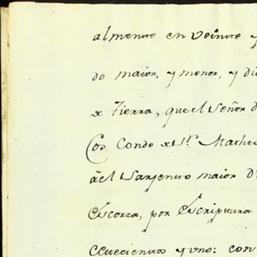 almente en veinte y
do maior, y menor, y di
x tierra, que el Señor D
Cod Conde x Sn. Mathe
ã el Sargento maior Dn
Escorza, por Escriptura
ecientos y uno: con